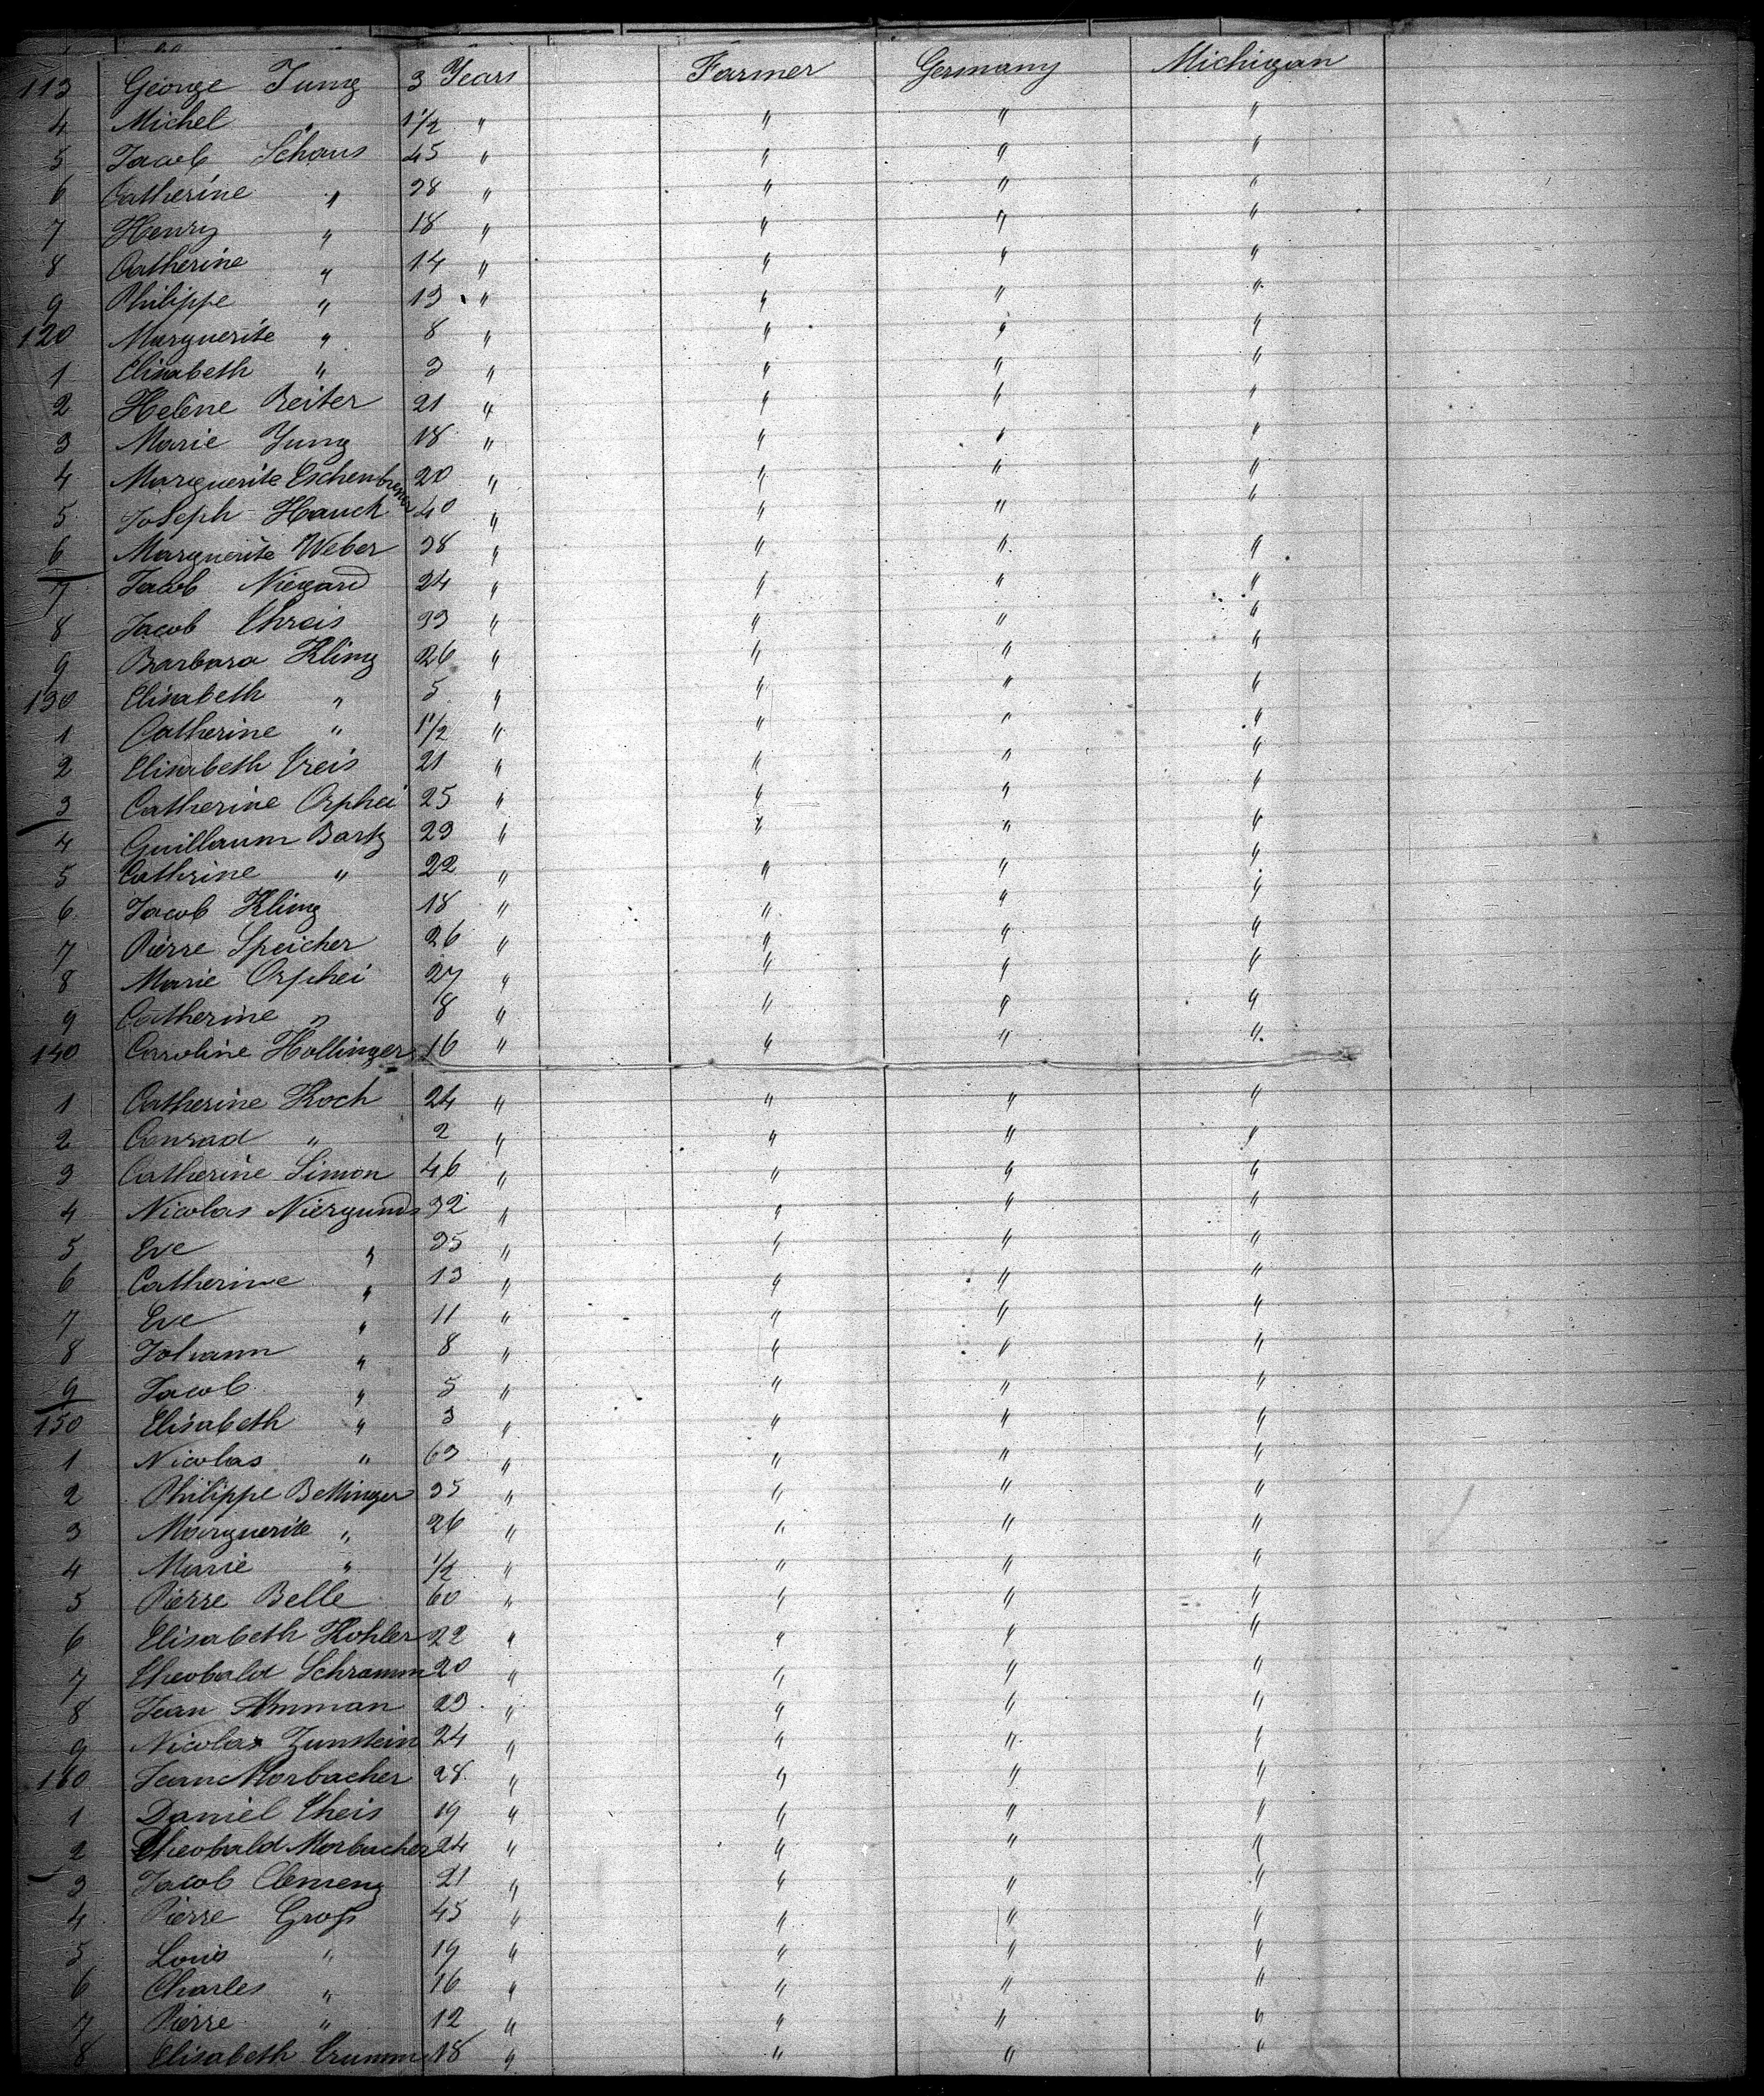 113 George Jung 3 Years Farmer Germany Michigan
4 Michel " 1 1/2 " " " "
5 Jacob Schaus 45 " " " "
6 Catherine " 38 " " " "
7 Henry " 18 " " " "
8 Catherine " 14 " " " "
9 Philippe " 13 " " " "
120 Marguerite " 8 " " " "
1 Elisabeth " 3 " " " "
2 Helène Reiter 21 " " " "
3 Marie Jung 18 " " " "
4 Marguerite Eschenbrener 20 " " " "
5 Joseph Hauck 40 " " " "
6 Marguerite Weber 38 " " " "
7 Jacob 24 " " " "
8 Jacob 33 " " " "
9 Barbara Kling 26 " " " "
130 Elisabeth " 5 " " " "
1 Catherine " 1 1/2 " " " "
2 Elisabeth Treis 21 " " " "
3 Catherine Orphei 25 " " " "
4 Guillaum Bartz 23 " " " "
5 Cathrine " 22 " " " "
6 Jacob Kling 18 " " " "
7 Pierre Speicher 26 " " " "
8 Marie Orphei 27 " " " "
9 Catherine " 8 " " " "
140 Caroline Hollinger 16 " " " "
1 Catherine Koch 24 " " " "
2 Conrad " 2 " " " "
3 Catherine Simon 46 " " " "
4 Nicolas Niergunds 32 " " " "
5 Eve " 35 " " " "
6 Catherine " 13 " " " "
7 Eve " 11 " " " "
8 Johann " 8 " " " "
9 Jacob " 5 " " " "
150 Elisabeth " 3 " " " "
1 Nicolas " 63 " " " "
2 Philippe Bettinger 35 " " " "
3 Marguerite " 26 " " " "
4 Marie " 1/2 " " " "
5 Pierre Belle 60 " " " "
6 Elisabeth Kohler 22 " " " "
7 Theobald Schramm 20 " " " "
8 Jean Amman 23 " " " "
9 Nicolas Zunstein 24 " " " "
160 Jean Morbacher 28 " " " "
1 Daniel Theis 19 " " " "
2 Theobald Morbacher 24 " " " "
3 Jacob Clemenz 21 " " " "
4 Pierre Groß 45 " " " "
5 Louis " 19 " " " "
6 Charles " 16 " " " "
7 Pierre " 12 " " " "
8 Elisabeth Crumm 18 " " " "